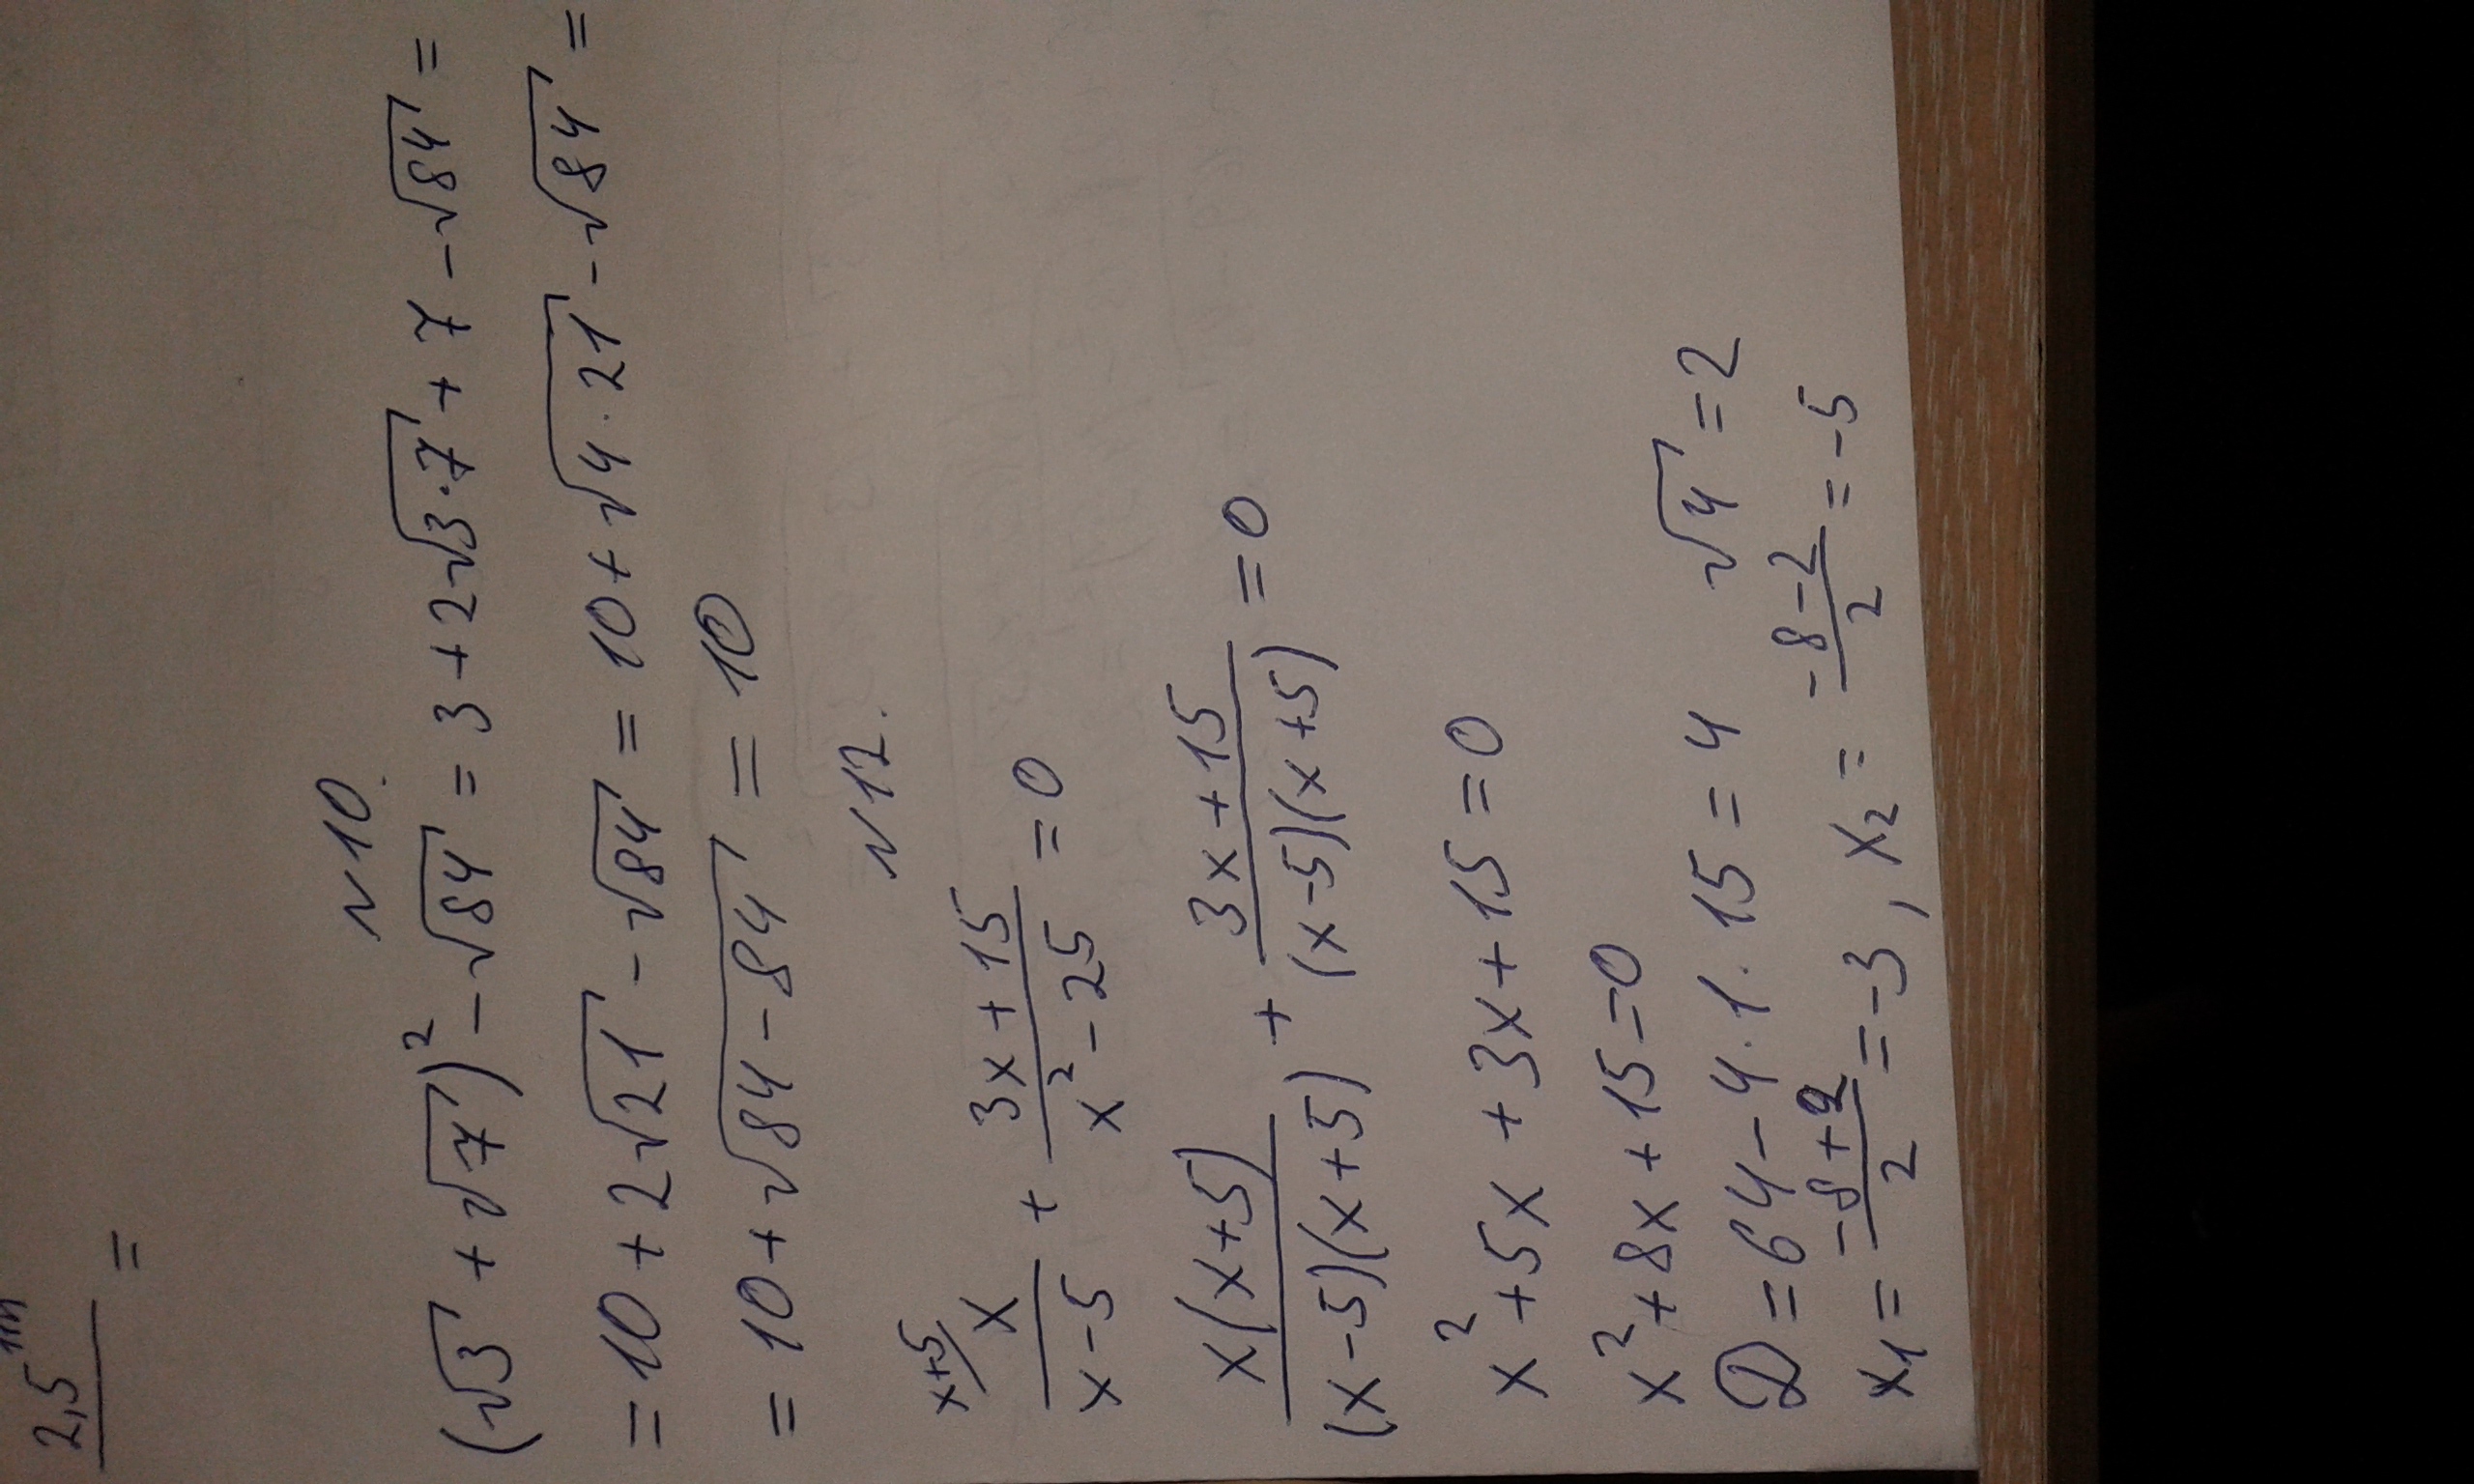 2,5
=
N10.
(√3 + √7)² - √84 = 3 + 2√3·7 + 7 - √84 =
= 10 + 2√21 - √84 = 10 + √4·21 - √84 =
= 10 + √84 - 84 = 10
N12.
x+5/ x/(x-5) + (3x + 15)/(x² - 25) = 0
x(x+5)/((x-5)(x+5)) + (3x + 15)/((x-5)(x+5)) = 0
x² + 5x + 3x + 15 = 0
x² + 8x + 15 = 0
D = 64 - 4·1·15 = 4 √4 = 2
x₁ = (-8+2)/2 = -3, x₂ = (-8-2)/2 = -5